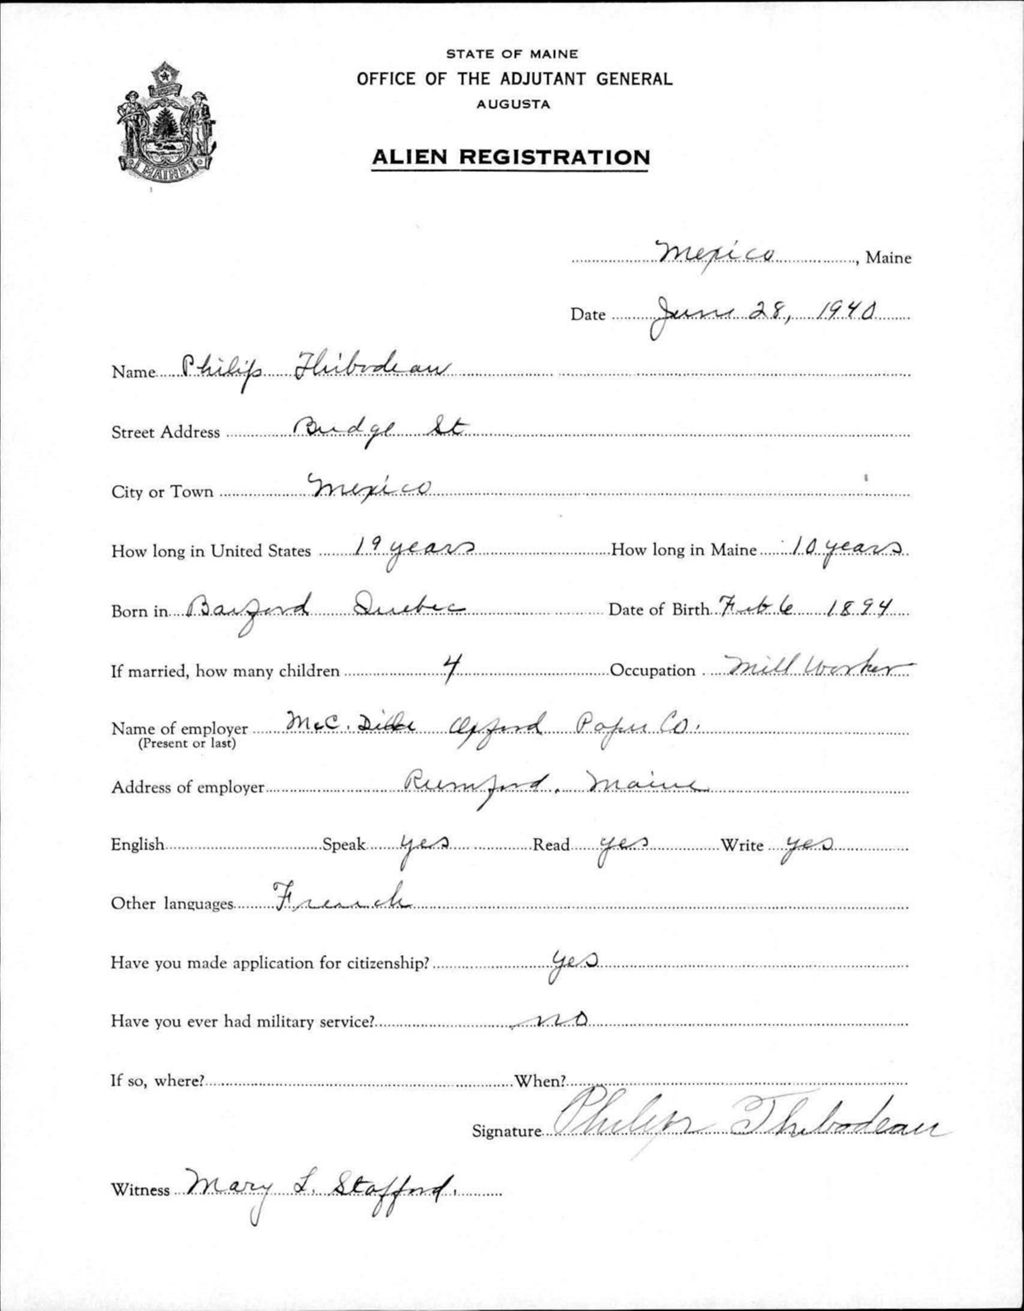 STATE OF MAINE
OFFICE OF THE ADJUTANT GENERAL
AUGUSTA
ALIEN REGISTRATION
MAINE
Mexico, Maine
Date June 28, 1940
Name Philip Thibodeau
Street Address Bridge St
City or Town Mexico
How long in United States 19 years How long in Maine 10 years
Born in Barford Quebec Date of Birth Feb 6 1894
If married, how many children 4 Occupation Mill Worker
Name of employer Oxford Paper Co.
(Present or last)
Address of employer Rumford, Maine
English Speak yes Read yes Write yes
Other languages French
Have you made application for citizenship? yes
Have you ever had military service? no
If so, where? When?
Signature Philip Thibodeau
Witness Mary L. Stafford.